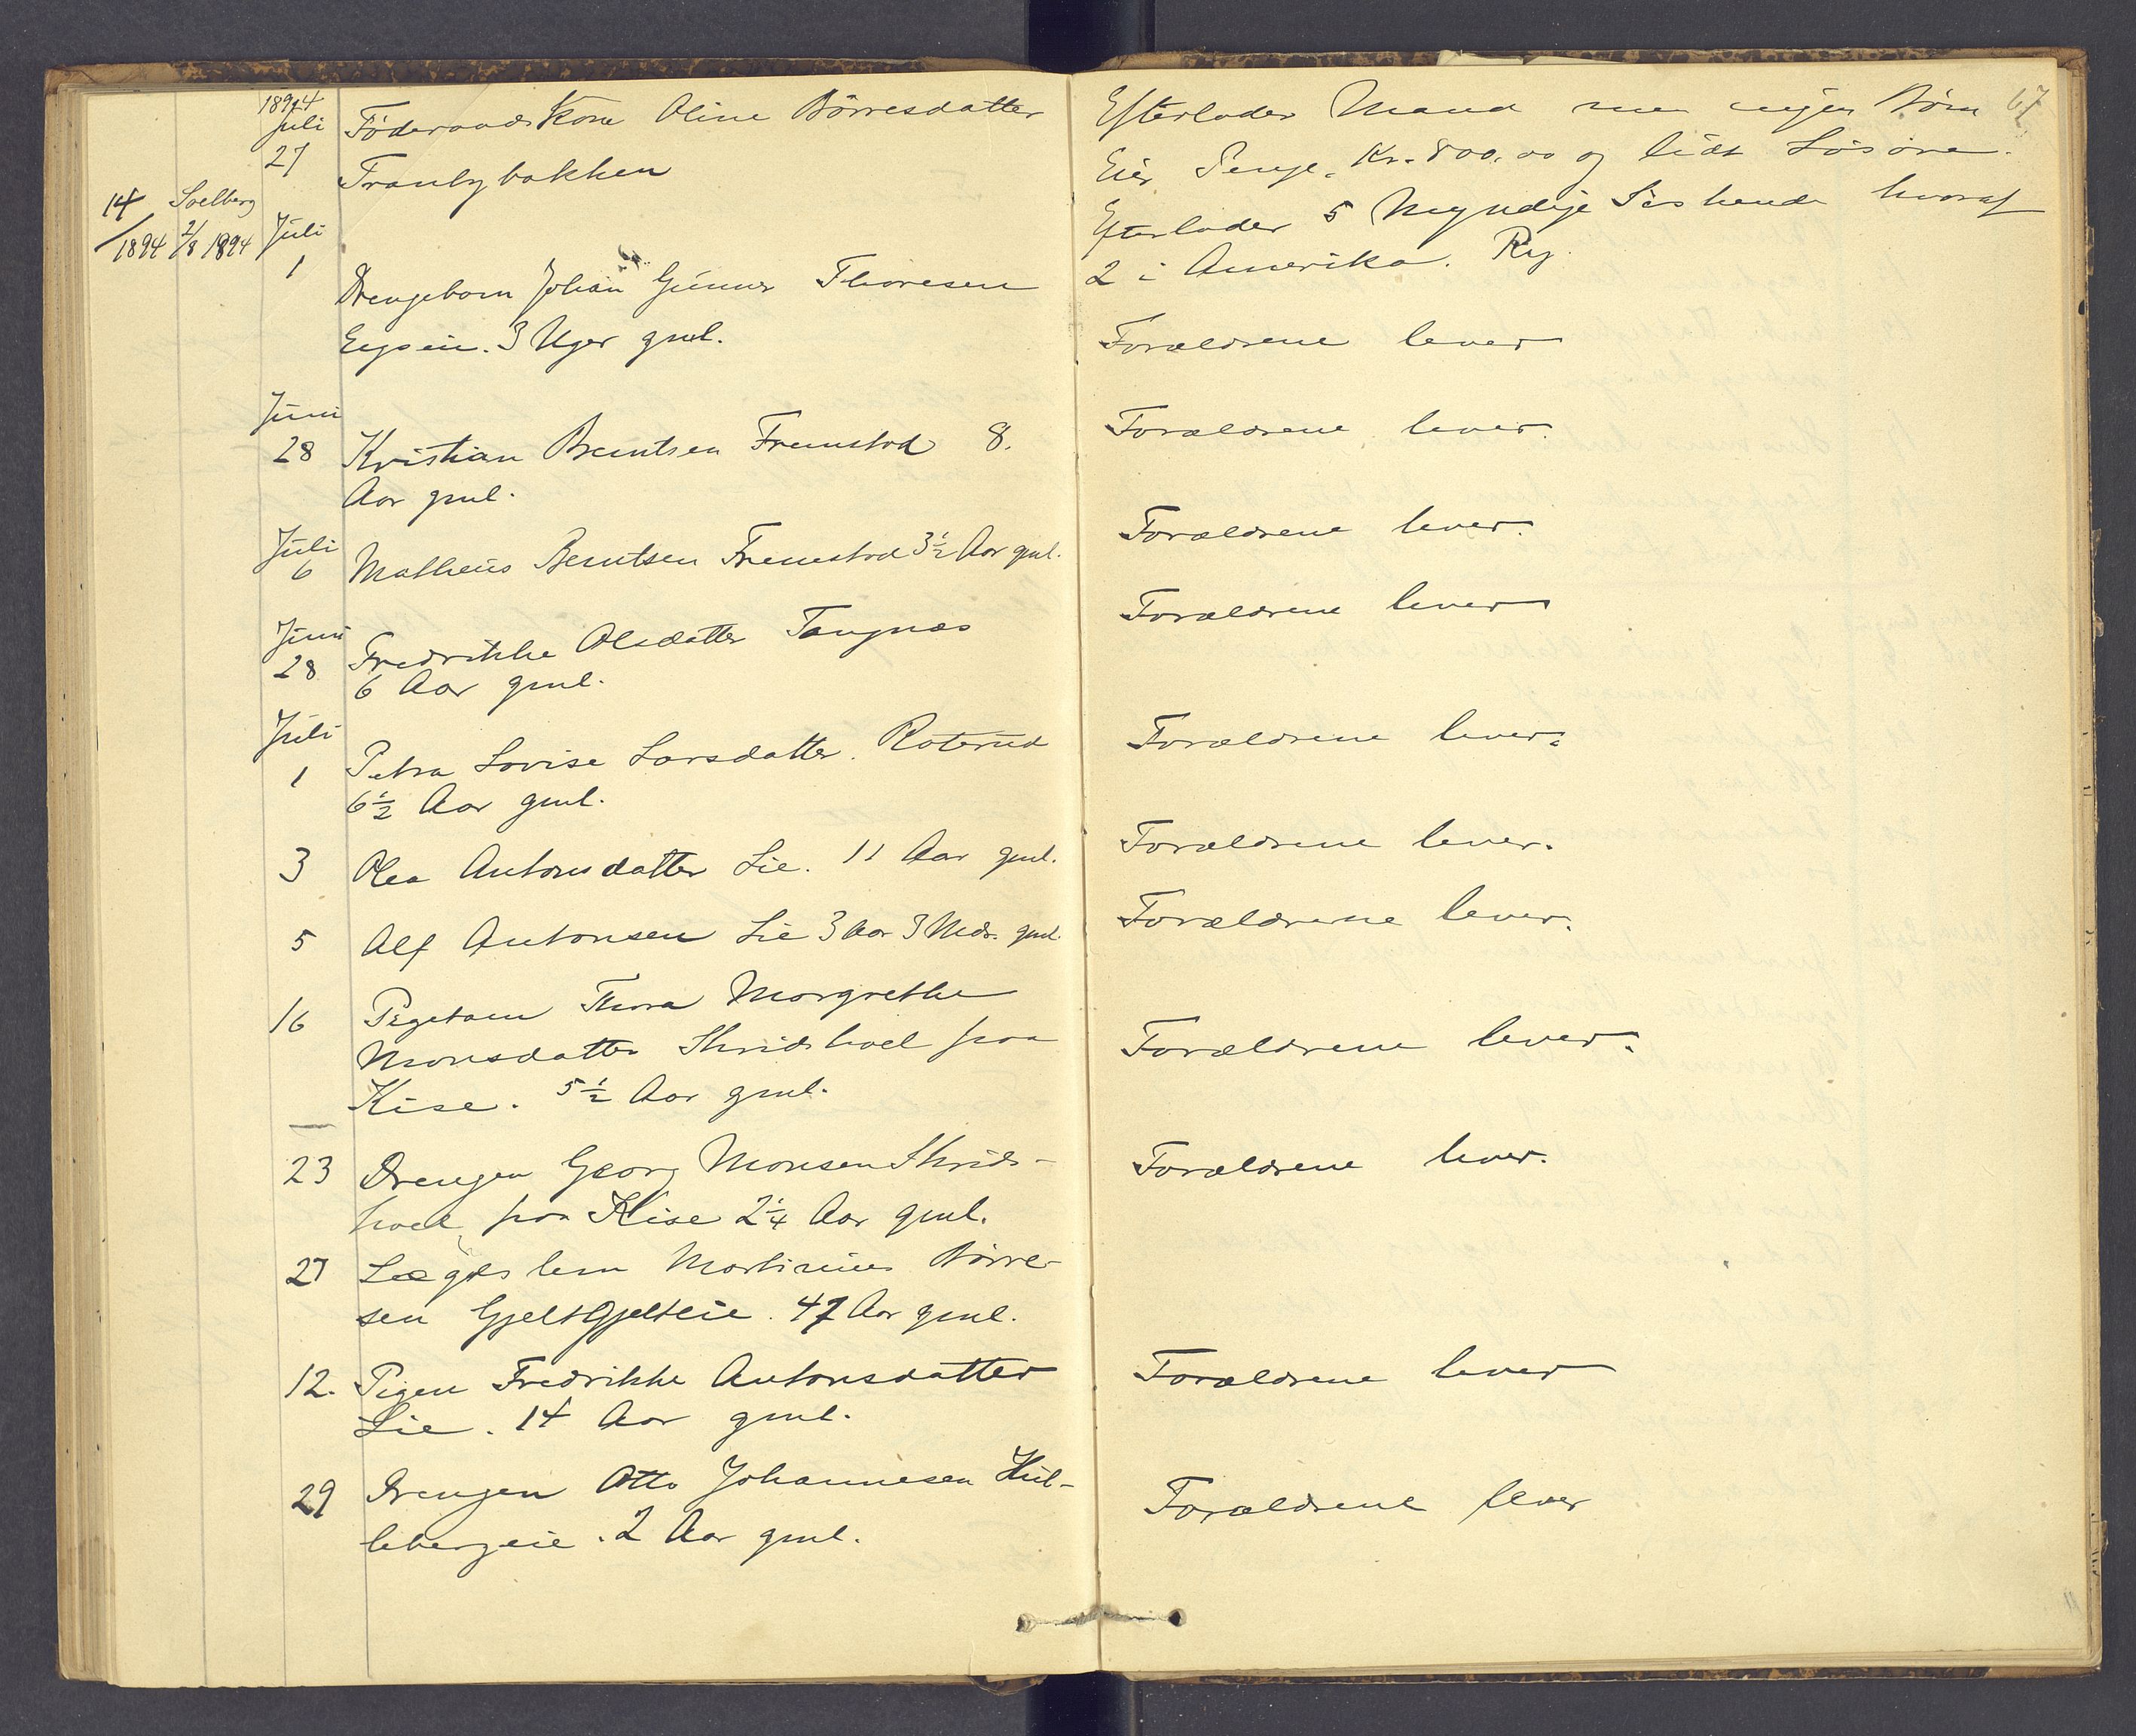 67
1894
Juli
27
Föderaads Kone Oline Börresdatter
Tranbybakken
Efterlader Mand men ingen Börn
Eier Penge. Kr. 800.00 og lidt Lösöre.
Efterlader 5 Myndige Söskende hvoraf
2 i Amerika. Reg.
14/1894
Solberg
2/8 1894
Juli
1
Drengebarn Johan Gunner Thoresen
3 Uger gml.
Forældrene lever
Juni
28
Kristian Berntsen Fremstad 8.
Aar gml.
Forældrene lever.
Juli
6
Matheus Berntsen Fremstad 3½ Aar gml.
Forældrene lever.
Juni
28
Fredrikke Olsdatter Tangnæs
6 Aar gml.
Forældrene lever
Juli
1
Petra Lovise Larsdatter. Roterud
6½ Aar gml.
Forældrene lever.
3
Olea Antonsdatter Lie. 11 Aar gml.
Forældrene lever.
5
Alf Antonsen Lie 3 Aar 3 Mdr. gml.
Forældrene lever.
16
Pigebarn Thora Margrethe
Monsdatter Skridshoel fraa
Kise. 5½ Aar gml.
Forældrene lever.
23
Drengen Georg Monsen Skrids-
hoel fra Kise 2¼ Aar gml.
Forældrene lever.
27
Lægdslem Martinius Börre-
sen Gjeltgjelteie. 47 Aar gml.
12.
Pigen Fredrikke Antonsdatter
Lie. 14 Aar gml.
Forældrene lever
29
Drengen Otto Johannesen Hul-
lebergeie. 2 Aar gml.
Forældrene lever